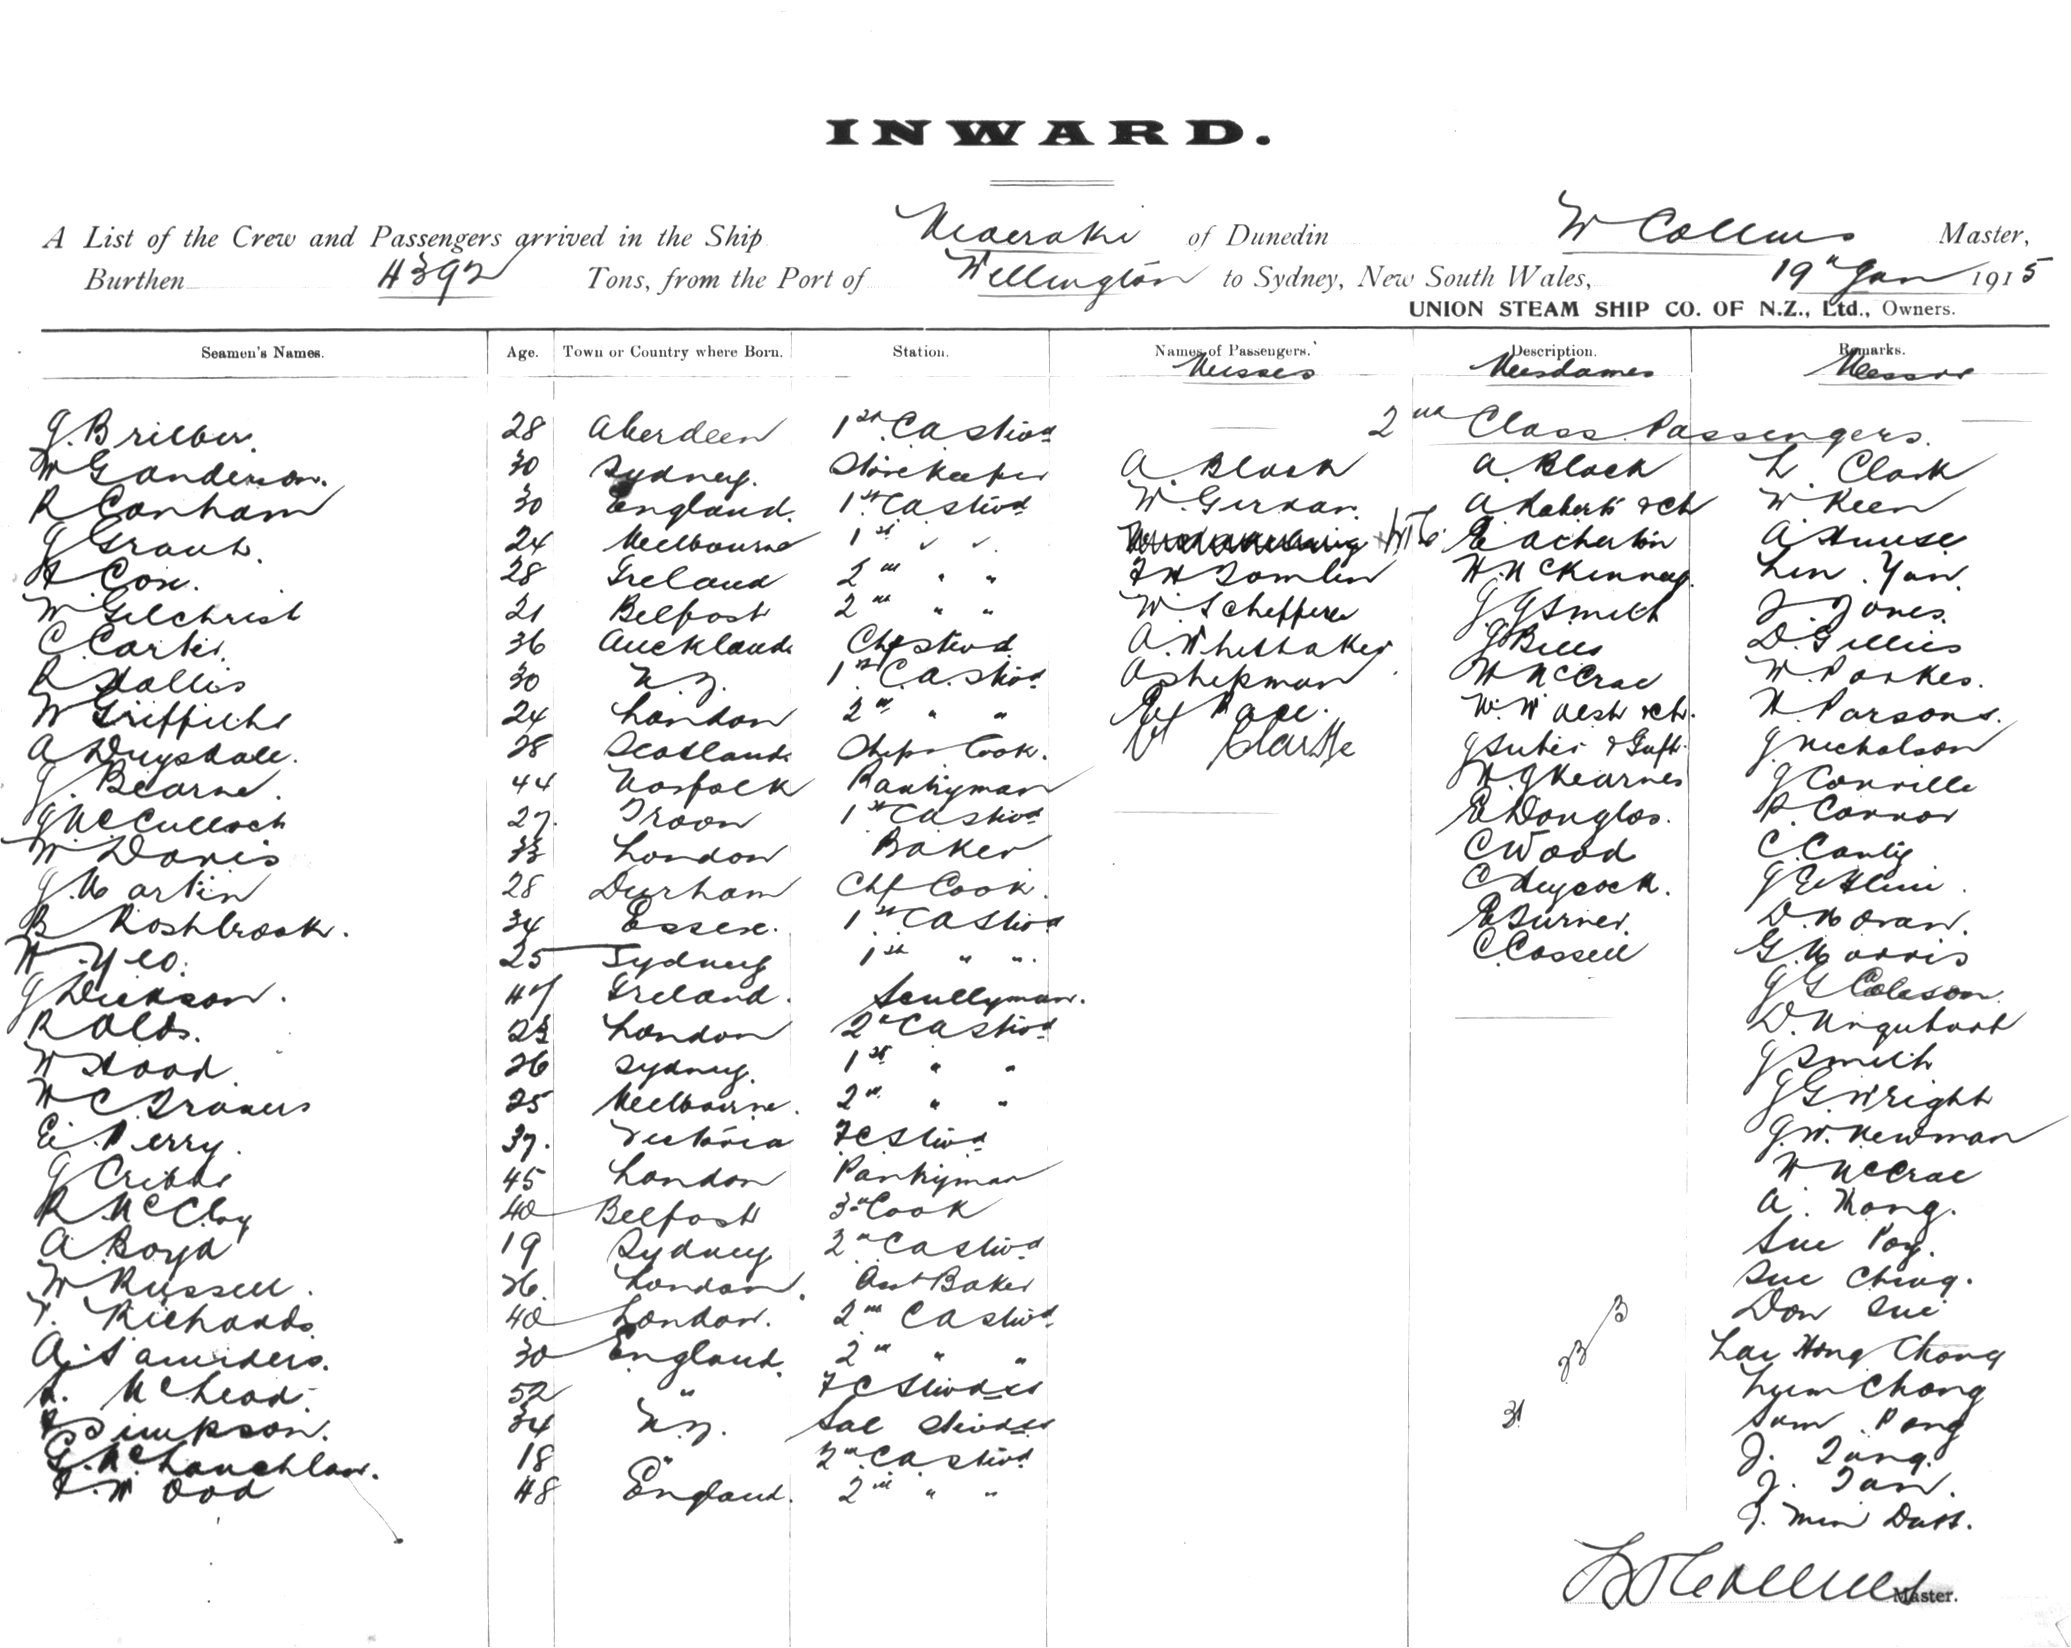 INWARD.
A List of the Crew and Passengers arrived in the Ship Moeraki of Dunedin W Collins Master,
Burthen 4392 Tons, from the Port of Wellington to Sydney, New South Wales, 19th Jan 1915
UNION STEAM SHIP CO. OF N.Z., Ltd., Owners.
Seamen's Names. Age. Town or Country where Born. Station. Names of Passengers. Description. Remarks.
Misses Mesdames Messrs
J. 28 Aberdeen 1st C A Stwd 2nd Class Passengers.
W Ganderson. 30 Sydney. Storekeeper A. Black A Black L. Clark
R Canham 30 England. 1st C A Stwd W. Girdan. A Roberts & Ch W Keen
J Grant. 24 Melbourne 1st " " E Atcherton A. Hunse
H Cox. 28 Ireland 2nd " " F H Tomlin H. McKinney. Lin. Yan.
W Gilchrist 21 Belfast 2nd " " W. Scheffere J G Smith J. Jones.
C. Carter. 36 Auckland Chf Stwd. A. Whittaker J Bills D. Gillies
R Hallis 30 N.Z. 1st C. A. Stwd A Shipman H McCrae W. Parkes.
W Griffiths 24 London 2nd " " E Pace. W. Walsh & Ch. H. Parsons.
A Drysdale. 28 Scotland Ships Cook. Clarke J Suter & Inft. J. Nicholson
J. Bearne. 44 Norfolk Pantryman H J Kearnes J Conville
J McCulloch 27. Troon 1st C A Stwd E Douglas. P. Connor
W Davis 33 London Baker C Wood C. Canty
J. Martin 28 Durham Chf Cook. C Heycock. J
B Roshbrook. 34 Essex. 1st C A Stwd E Turner. D. Moran.
H. Yeo. 25 Sydney 1st " ". C. Cassell G. Morris
J Dickson. 47 Ireland. Scullyman. J G Coleson.
R Olds. 23 London 2nd C A Stwd D. Urquhart
W Hood. 26 Sydney. 1st " " J Smith
H C Travers 25 Melbourne. 2nd " " J G. Wright
E. Perry. 37. Victoria F C Stwd J. W. Newman
J Cribbs 45 London Pantryman H McCrae
R McCloy 40 Belfast 3rd Cook A. Kong.
A. Boyd 19 Sydney 2nd C A Stwd Sue Poy.
W Russell. 26. London. Asst Baker Sue Ching.
T. Richards 40 London. 2nd C A Stwd. Don Sue
A. Saunders. 30 England. 2nd " " 23 3 Lai Hong Chong
L. McLeod. 52 " F C Stwdess Lum Chong
Simpson. 34 N.Z. Sal Stwdess 31 Sam Pong
G. McLauchlan. 18 " 2nd C A Stwd J. Tang.
F. Wood 48 England. 2nd " " J. Tan.
J. Min Datt.
W Collins Master.